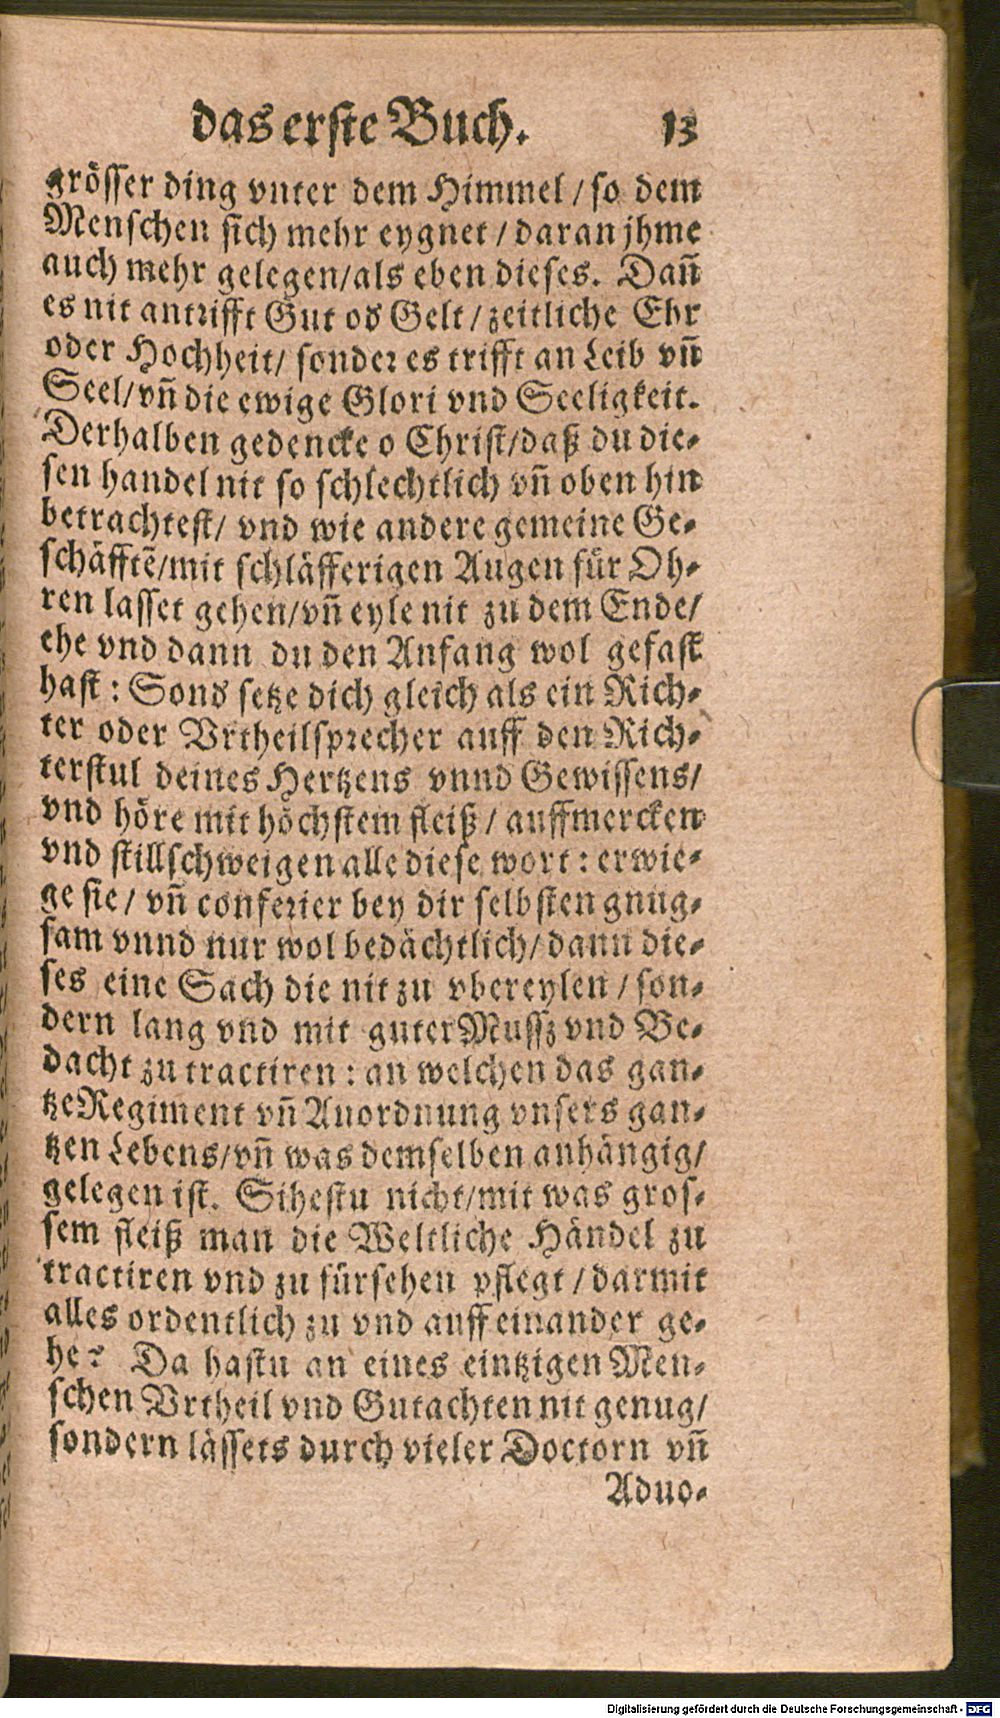 das erste Buch. 13
grösser ding vnter dem Himmel / so dem
Menschen sich mehr eygnet / daran jhme
auch mehr gelegen/als eben dieses. Dañ
es nit antrifft Gut od̕ Gelt / zeitliche Ehr
oder Hochheit/ sonder es trifft an Leib vñ
Seel/vñ die ewige Glori vnd Seeligkeit.
Derhalben gedencke o Christ/daß du die-
sen handel nit so schlechtlich vñ oben hin
betrachtest/ vnd wie andere gemeine Ge-
schäfftẽ/mit schläfferigen Augen für Oh-
ren lasset gehen/vñ eyle nit zu dem Ende/
ehe vnd dann du den Anfang wol gefast
hast : Sond̕ setze dich gleich als ein Rich-
ter oder Vrtheilsprecher auff den Rich-
terstul deines Hertzens vnnd Gewissens/
vnd höre mit höchstem fleiß / auffmercken
vnd stillschweigen alle diese wort : erwie-
ge sie / vñ conferier bey dir selbsten gnug-
sam vnnd nur wol bedächtlich/ dann die-
ses eine Sach die nit zu vbereylen / son-
dern lang vnd mit guter Mussz vnd Be-
dacht zu tractiren : an welchen das gan-
tze Regiment vñ Anordnung vnsers gan-
tzen Lebens/vñ was demselben anhängig/
gelegen ist. Sihestu nicht/mit was gros-
sem fleiß man die Weltliche Händel zu
tractiren vnd zu fürsehen pflegt / darmit
alles ordentlich zu vnd auff einander ge-
he? Da hastu an eines eintzigen Men-
schen Vrtheil vnd Gutachten nit genug/
sondern lässets durch vieler Doctorn vñ
Aduo-
Digitalisierung gefördert durch die Deutsche Forschungsgemeinschaft - DFG